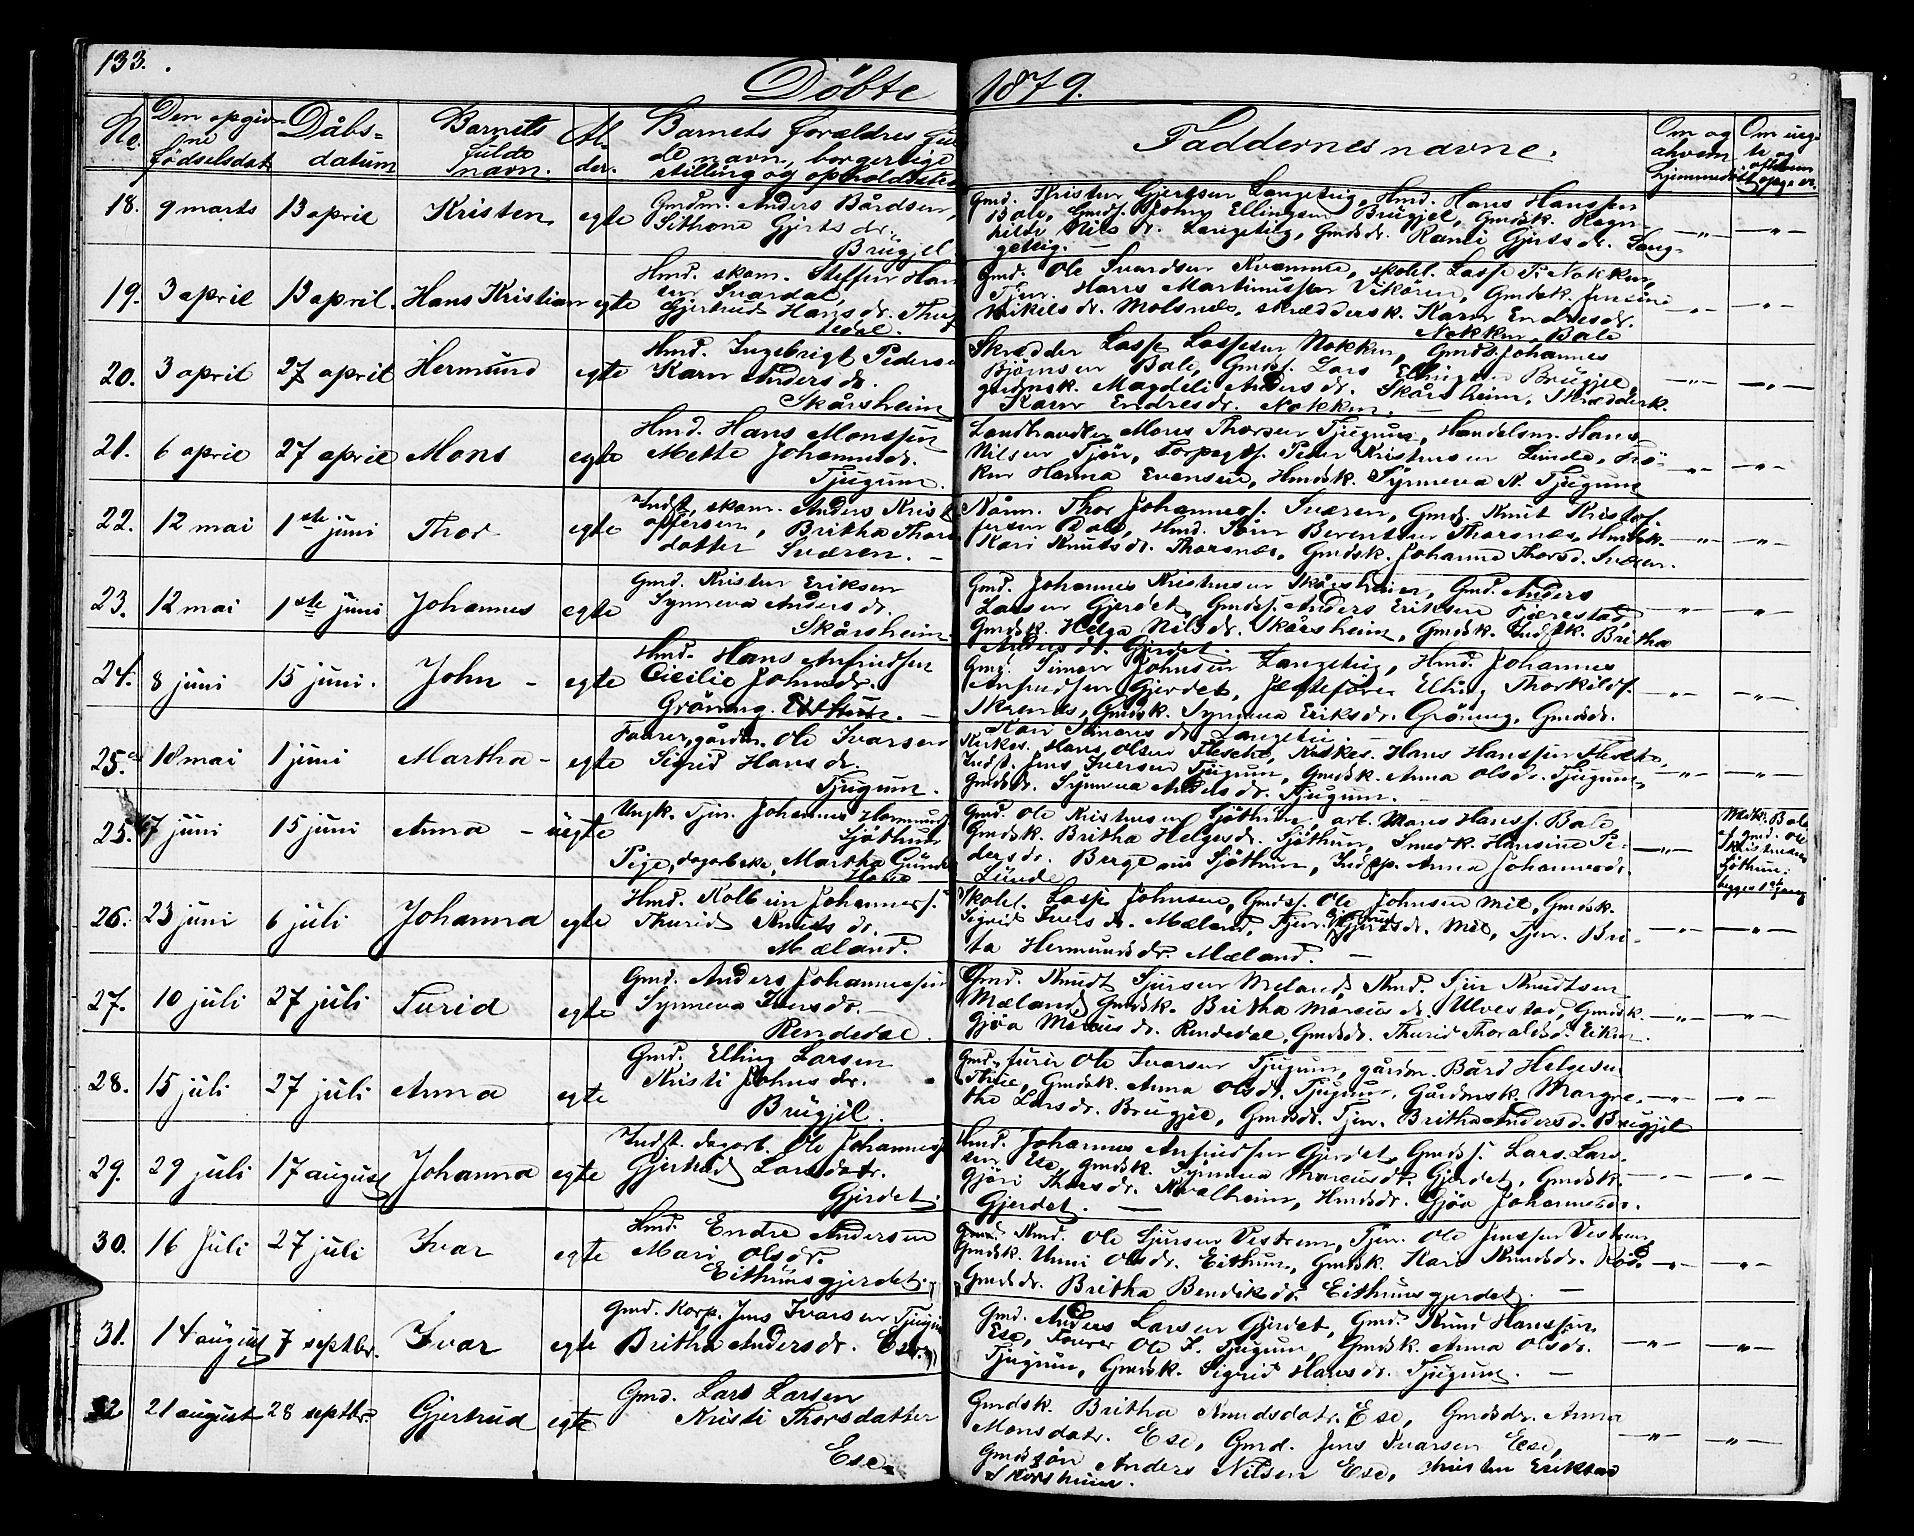 133.
Döbte 1879.
No. Den opgivne fødselsdat. Dåbsdatum Barnets fulde navn. Alder. Barnets forældres fulde navn, borgerlige stilling og opholdsted Faddernes navne. Om og ahvem hjemmedöbt
18. 9 marts 13 april Kristen egte Gmdm. Anders Bårdsen,
Sithone Gjertsdr.
Brügjel
Gmd. Kristen Gjertsen Langeteig, Hmd. Hans Hanssen
Bale, Gmdss. John Ellingsen Brügjel, Gmdsk. Ragn-
hilde Nilsdr. Langeteig, Gmdsdr. Rani Gjertsdr. Lang-
geteig.
19. 3 april 13 april. Hans Kristian egte Hmd. skom. Steffen Han
sen Svardal,
Gjertrud Hansdr. Thu
sedal.
Gmd. Ole Ivardsen Kvamme, skolel. Lasse P. Nokken,
Tjen. Hans Martinussen Vikören, Gmdsk. Jensine
Mikelsdr. Molsnes, skræddersk. Karn Endresdr.
Nokken, Bale
20. 3 april 27 april Hermund egte Hmd. Ingebrigt Pederse
Karn Andersdr.
Skårsheim
Skrædder Lasse Lassesen Nokken, Gmds. Johannes
Björnsen Bale, Gmdss. Lars Ellingsen Brügjel,
gaardmsk. Magdeli Andersdr. Skårsheim, Skræddersk.
Karn Endresdr. Nokken.
21. 6 april 27 april Mons egte Hmd. Hans Monssen
Mette Johannesdr.
Tjugum.
Landhandler Mons Thorsen Tjugum, Handelsm. Hans
Nilsen Tjön, Korpegts. Peter Kristensen Lunde, Frö-
ken Hanna Evensen, Hmdsk. Synneva N. Tjugum
22. 12 mai 1ste juni Thor egte Indst. skom. Anders Krist
offersen, Britha Thors
datter Sværen.
Kårm. Thor Johanness. Sværen, Gmd. Knut Kristof-
fersen Dale, Hmd. Törn Berentsen Thorsnes, Hmdsk.
Kari Knutsdr. Thorsnes, Gmdsk. Johanne Thorsd. Sværen.
23. 12 mai 1ste juni Johannes egte Gmd. Kristen Eriksen
Synneva Andersdr.
Skårsheim
Gmd. Johannes Kristensen Skårsheim, Gmd. Anders
Larsen Gjerdet, Gmdss. Anders Eriksen Fjærestad,
Gmdsk. Helga Nilsdr. Skårsheim, Gmdsk. Indstk. Britha
Andersdr. Gjerdet.
24. 8 juni 15 juni. John egte Hmd. Hans Anfindsen
Cicilie Johnsdr.
Gröning.
Gmd. Simon Johnsen Langeteig, Hmd. Johannes
Anfindsen Gjerdet, Jægtefører Elling Thorkilds.
Skrenes, Gmdsk. Synneva Eriksdr. Gröning, Gmdsdr.
Kari Simonsdr. Langetei.
25. 18 mai 1 juni Martha egte Faarer, gårdm. Ole Ivarsen
Sigrid Hansdr.
Tjugum.
Kirkes. Hans Olsen Flesche, Kirkes. Hans Hanssen
Indst. Jens Iversen Tjugum, Gmdsk. Anna Olsdr. Tjugum,
Gmdsdr. Synneva Andersdr. Tjugum.
25. 7 juni 15 juni Anna uegte Ungk. Tjen. Johannes Hermunds
Sjöthun
Pige, dagarbeke, Martha Günder
Gmd. Ole Kristensen Sjöthun, arb. Mons Hanss. Bale
Gmdsk. Britha Helgesdr. Sjöthun, Smedk. Hansine Pe-
dersdr. Berge am Sjöthun, Indsp. Anna Johannesdr.
Lunde
26. 23 juni 6 juli Johanna egte Hmd. Kolbein Johanness.
Thurid Knutsdr.
Mæland.
Skolel. Lasse Johnsen, Gmdss. Ole Johnsen Mel, Gmdsk.
Sigrid Iversdr. Mæland, Tjen. Gjertrud Gjertsdr. Mel, Tjen. Bri-
ta Hermundsdr. Mæland.
27. 10 juli 27 juli Turid egte Gmd. Anders Johannessen
Synneva Iversdr.
Rendedal.
Gmd. Knudt Sjursen Meland, Kmd. Sjur Knudtsen
Mæland, Gmdsk. Britha Marcusdr. Ulvestad, Gmdsk.
Gjöa Marcusdr. Rendedal, Gmdsdr. Thurid Thoralds. Eiken.
28. 15 juli 27 juli Anna egte Gmd. Elling Larsen
Kristi Johnsdr.
Brügjel.
Gmd. furer Ole Ivarsen Tjugum, gårdm. Bård Helgesen
Thue, Gmdsk. Anna Olsdr. Tjugum, Gårdmsk. Margre-
the Larsdr. Brügjel, Gmdsdr. Tjen. Britha Andersd. Brügjel
29. 29 juli 17 august Johanna egte Indst. dagarb. Ole Johanness
Gjertrud Larsdatr.
Gjerdet.
Hmd. Johannes Anfindsen Gjerdet, Gmdss. Lars Lars-
sen Ese, Gmdsk. Synneva Marcusdr. Gjerdet, Gmdsk.
Gjöri Thorsdr. Kvalheim, Hmdsdr. Gjöa Johannesdr.
Gjerdet.
30. 16 Juli 27 juli Ivar egte Hmd. Endre Andersen
Mari Olsdr.
Eithunsgjerdet.
Kmd. Ole Sjursen Vestrem, Tjen. Ole Jenssen Vestrem,
Gmdsk. Unni Olsdr. Eithun, Gmdsk. Kari Knudsdr. Röd.
Gmdsdr. Britha Bendiksdr. Eithunsgjerdet.
31. 14 august 7 septbr. Ivar egte Gmd. Korp. Jens Ivarsen Tjugum
Britha Andersdr. Ese
Gmd. Anders Larsen Gjerdet, Gmd. Knud Hanssen
Ese, Fourer Ole I. Tjugum, Gmdsk. Anna Olsdr.
Tjugum, Gmdsk. Sigrid Hansdr. Tjugum.
32 21 august 28 septbr Gjertrud egte Gmd. Lars Larsen
Kristi Thorsdatter
Ese.
Gmdsk. Britha Knudsdatr. Ese, Gmdsdr. Anna
Monsdatr. Ese, Gmd. Jens Ivarsen Ese,
Gmdssön Anders Nilsen Ese, Christen Eriksen
Skårsheim.